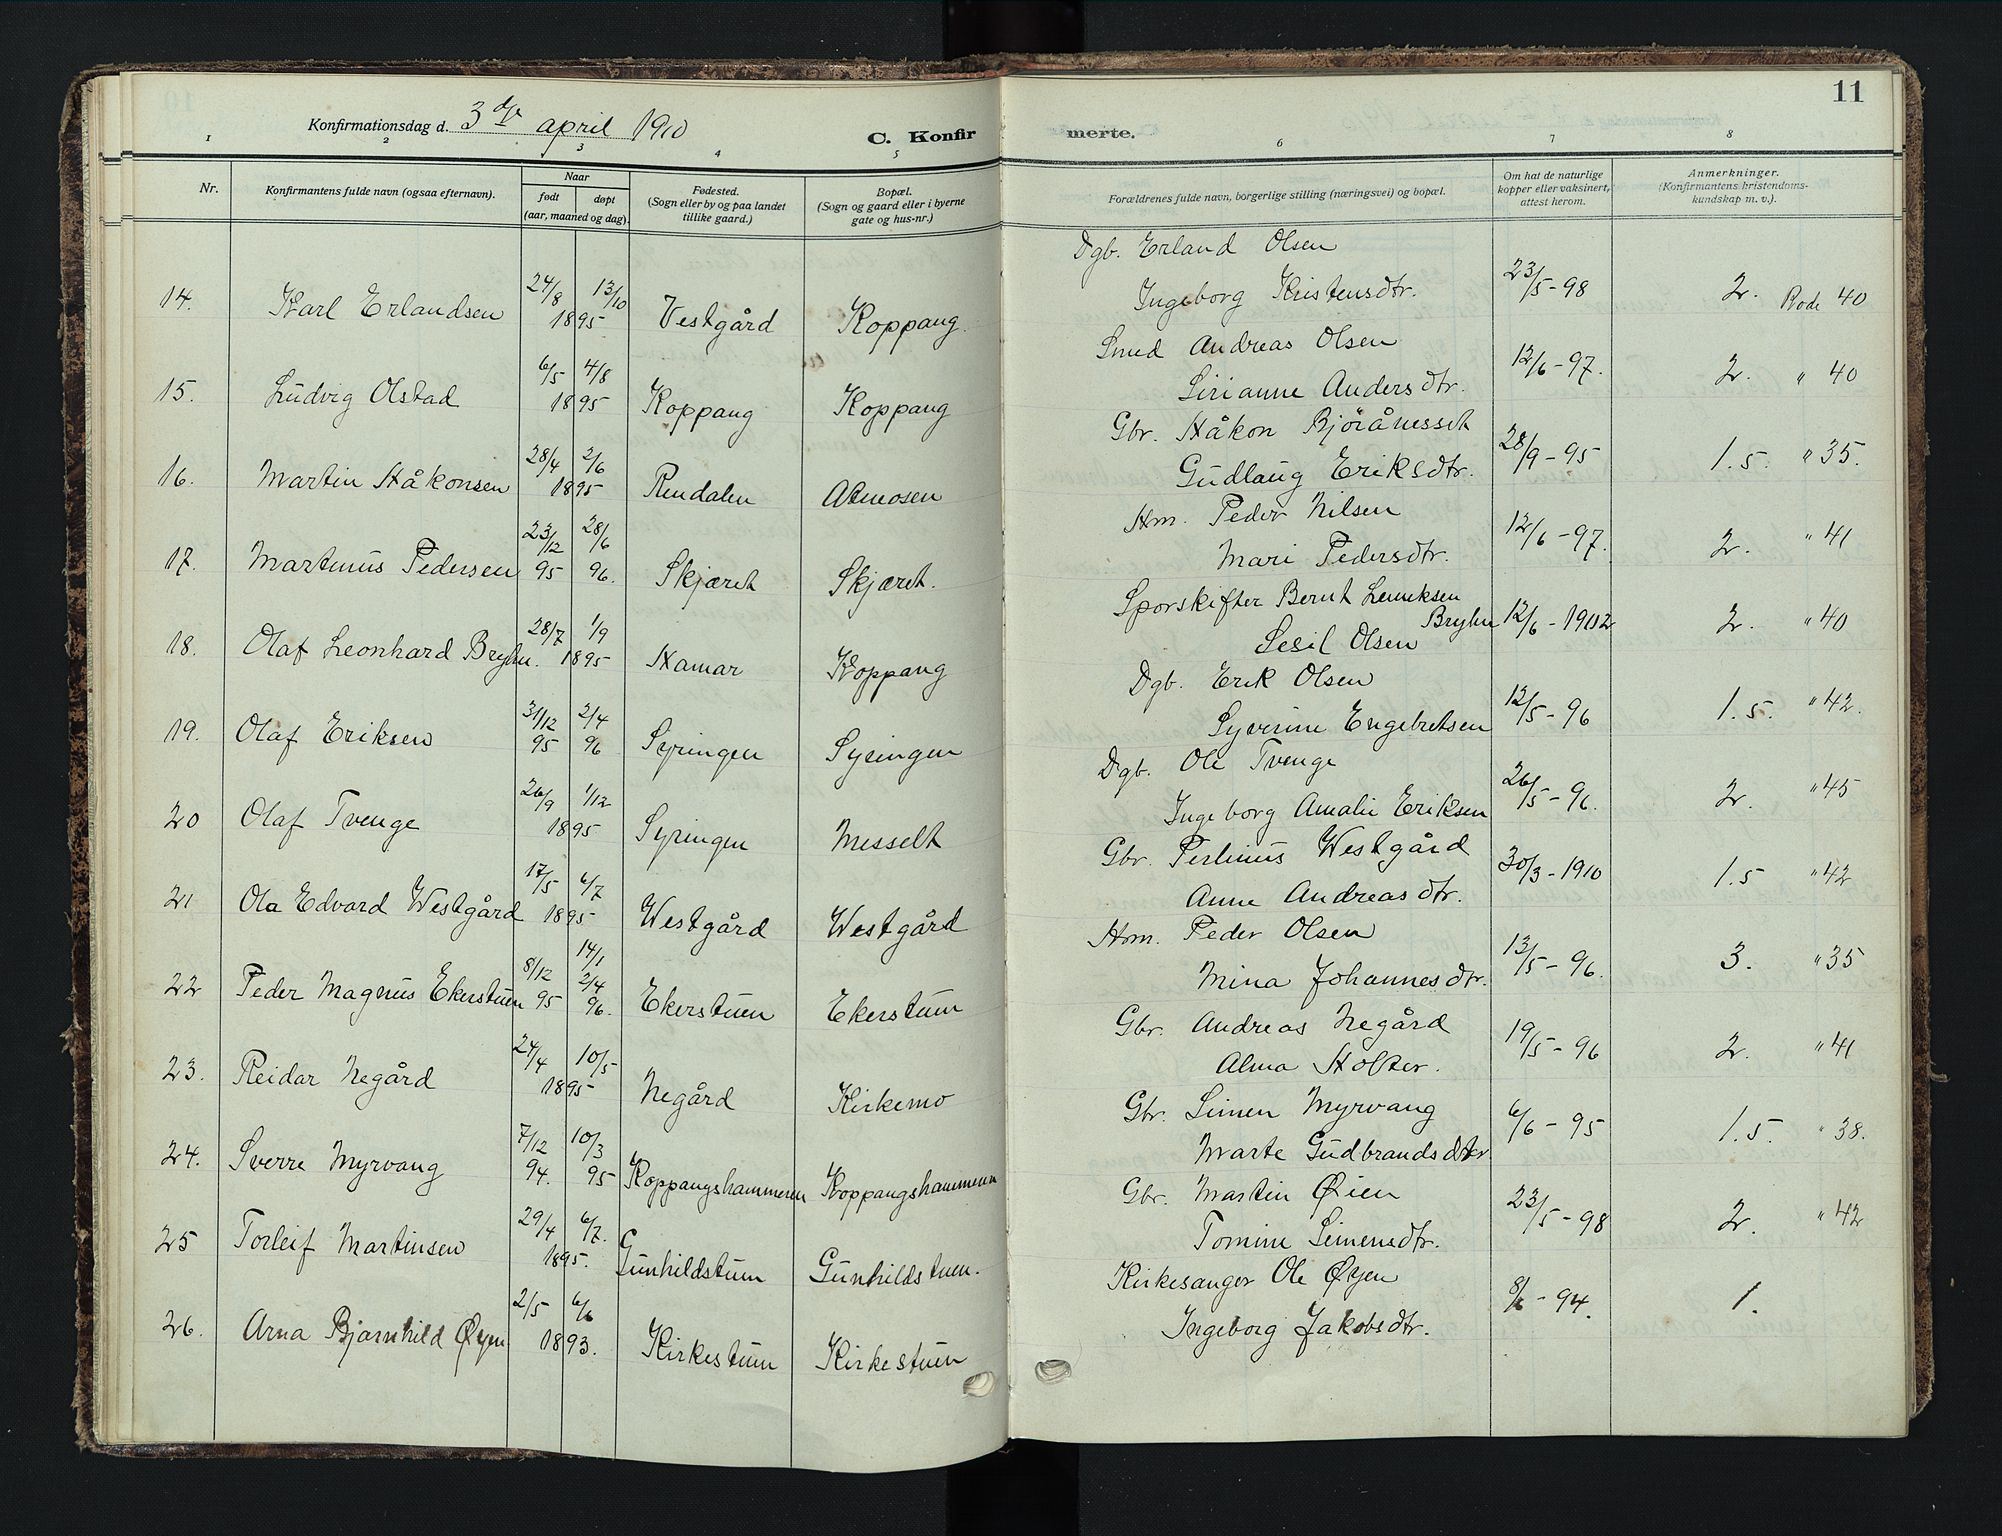 11
Konfirmationsdag d. 3die april 1910
C. Konfirmerte.
1 2 3 4 5 6 7 8
Nr.
Konfirmantens fulde navn (ogsaa efternavn).
Naar
født døpt
(aar, maaned og dag).
Fødested.
(Sogn eller by og paa landet
tillike gaard.)
Bopæl.
(Sogn og gaard eller i byerne
gate og hus-nr.)
Forældrenes fulde navn, borgerlige stilling (næringsvei) og bopæl.
Om hat de naturlige
kopper eller vaksinert,
attest herom.
Anmerkninger.
(Konfirmantens kristendoms-
kundskap m. v.).
Dgb. Erland Olsen
14. Karl Erlandsen 24/8 13/10 1895 Vestgård Koppang. Ingeborg Kristensdtr. 23/5-98 2. Bode 40
Smed Andreas Olsen
15. Ludvig Olstad 6/5 4/8 1895 Koppang Koppang Sirianne Andersdtr. 12/6-97. 2. " 40
Gbr. Håkon Bjøråneset
16. Martin Håkonsen 28/4 2/6 1895 Rendalen Atmosen Gudlaug Eriksdtr. 28/9-95 1.5. " 35.
Hm. Peder Nilsen
17. Martinus Pedersen 23/12 95 28/6 96. Skjæret Skjæret. Mari Pedersdtr. 12/6-97. 2. " 41
Sporskifter Bernt Lauritsen Bryhn
18. Olaf Leonhard Bryhn. 28/7 1/9 1895 Hamar Koppang Sesil Olsen 12/6-1902 2. " 40
Dgb. Erik Olsen
19. Olaf Eriksen 31/12 95 2/4 96 Syringen Syringen Syverine Engebretsen 12/5-96 1.5. " 42.
Dgb. Ole Tvenge
20 Olaf Tvenge 26/9 1/12 1895 Syringen Messelt Ingeborg Amalie Eriksen 26/5-96. 2. " 45
Gbr. Perlinus Westgård
21 Ola Edvard Westgård 17/5 6/7 1895 Westgård Westgård Anne Andreasdtr. 30/3-1910 1.5 " 42
Hm. Peder Olsen
22 Peder Magnus Ekerstuen 8/12 95 14/1 2/4 96. Ekerstuen Ekerstuen Mina Johannesdtr. 13/5-96. 3. " 35
Gbr. Andreas Negård
23. Reidar Negård 24/4 10/5 1895 Negård Kirkemo Alma Holter. 19/5-96 2. " 41
Gbr. Simen Myrvang
24. Sverre Myrvang 7/12 94. 10/3 95 Koppangshammeren Koppangshammeren Marte Gudbrandsdtr. 6/6-95 1.5. " 38.
Gbr. Martin Øien
25 Torleif Martinsen 29/4 6/7. 1895. Gunhildstuen Gunhildstuen. Tomine Simensdtr. 23/5-98 2. " 42
Kirkesanger Ole Øyen
26. Arna Bjarnhild Øyen 2/5 6/6 1893. Kirkestuen Kirkestuen Ingeborg Jakobsdtr. 8/6-94. 1.